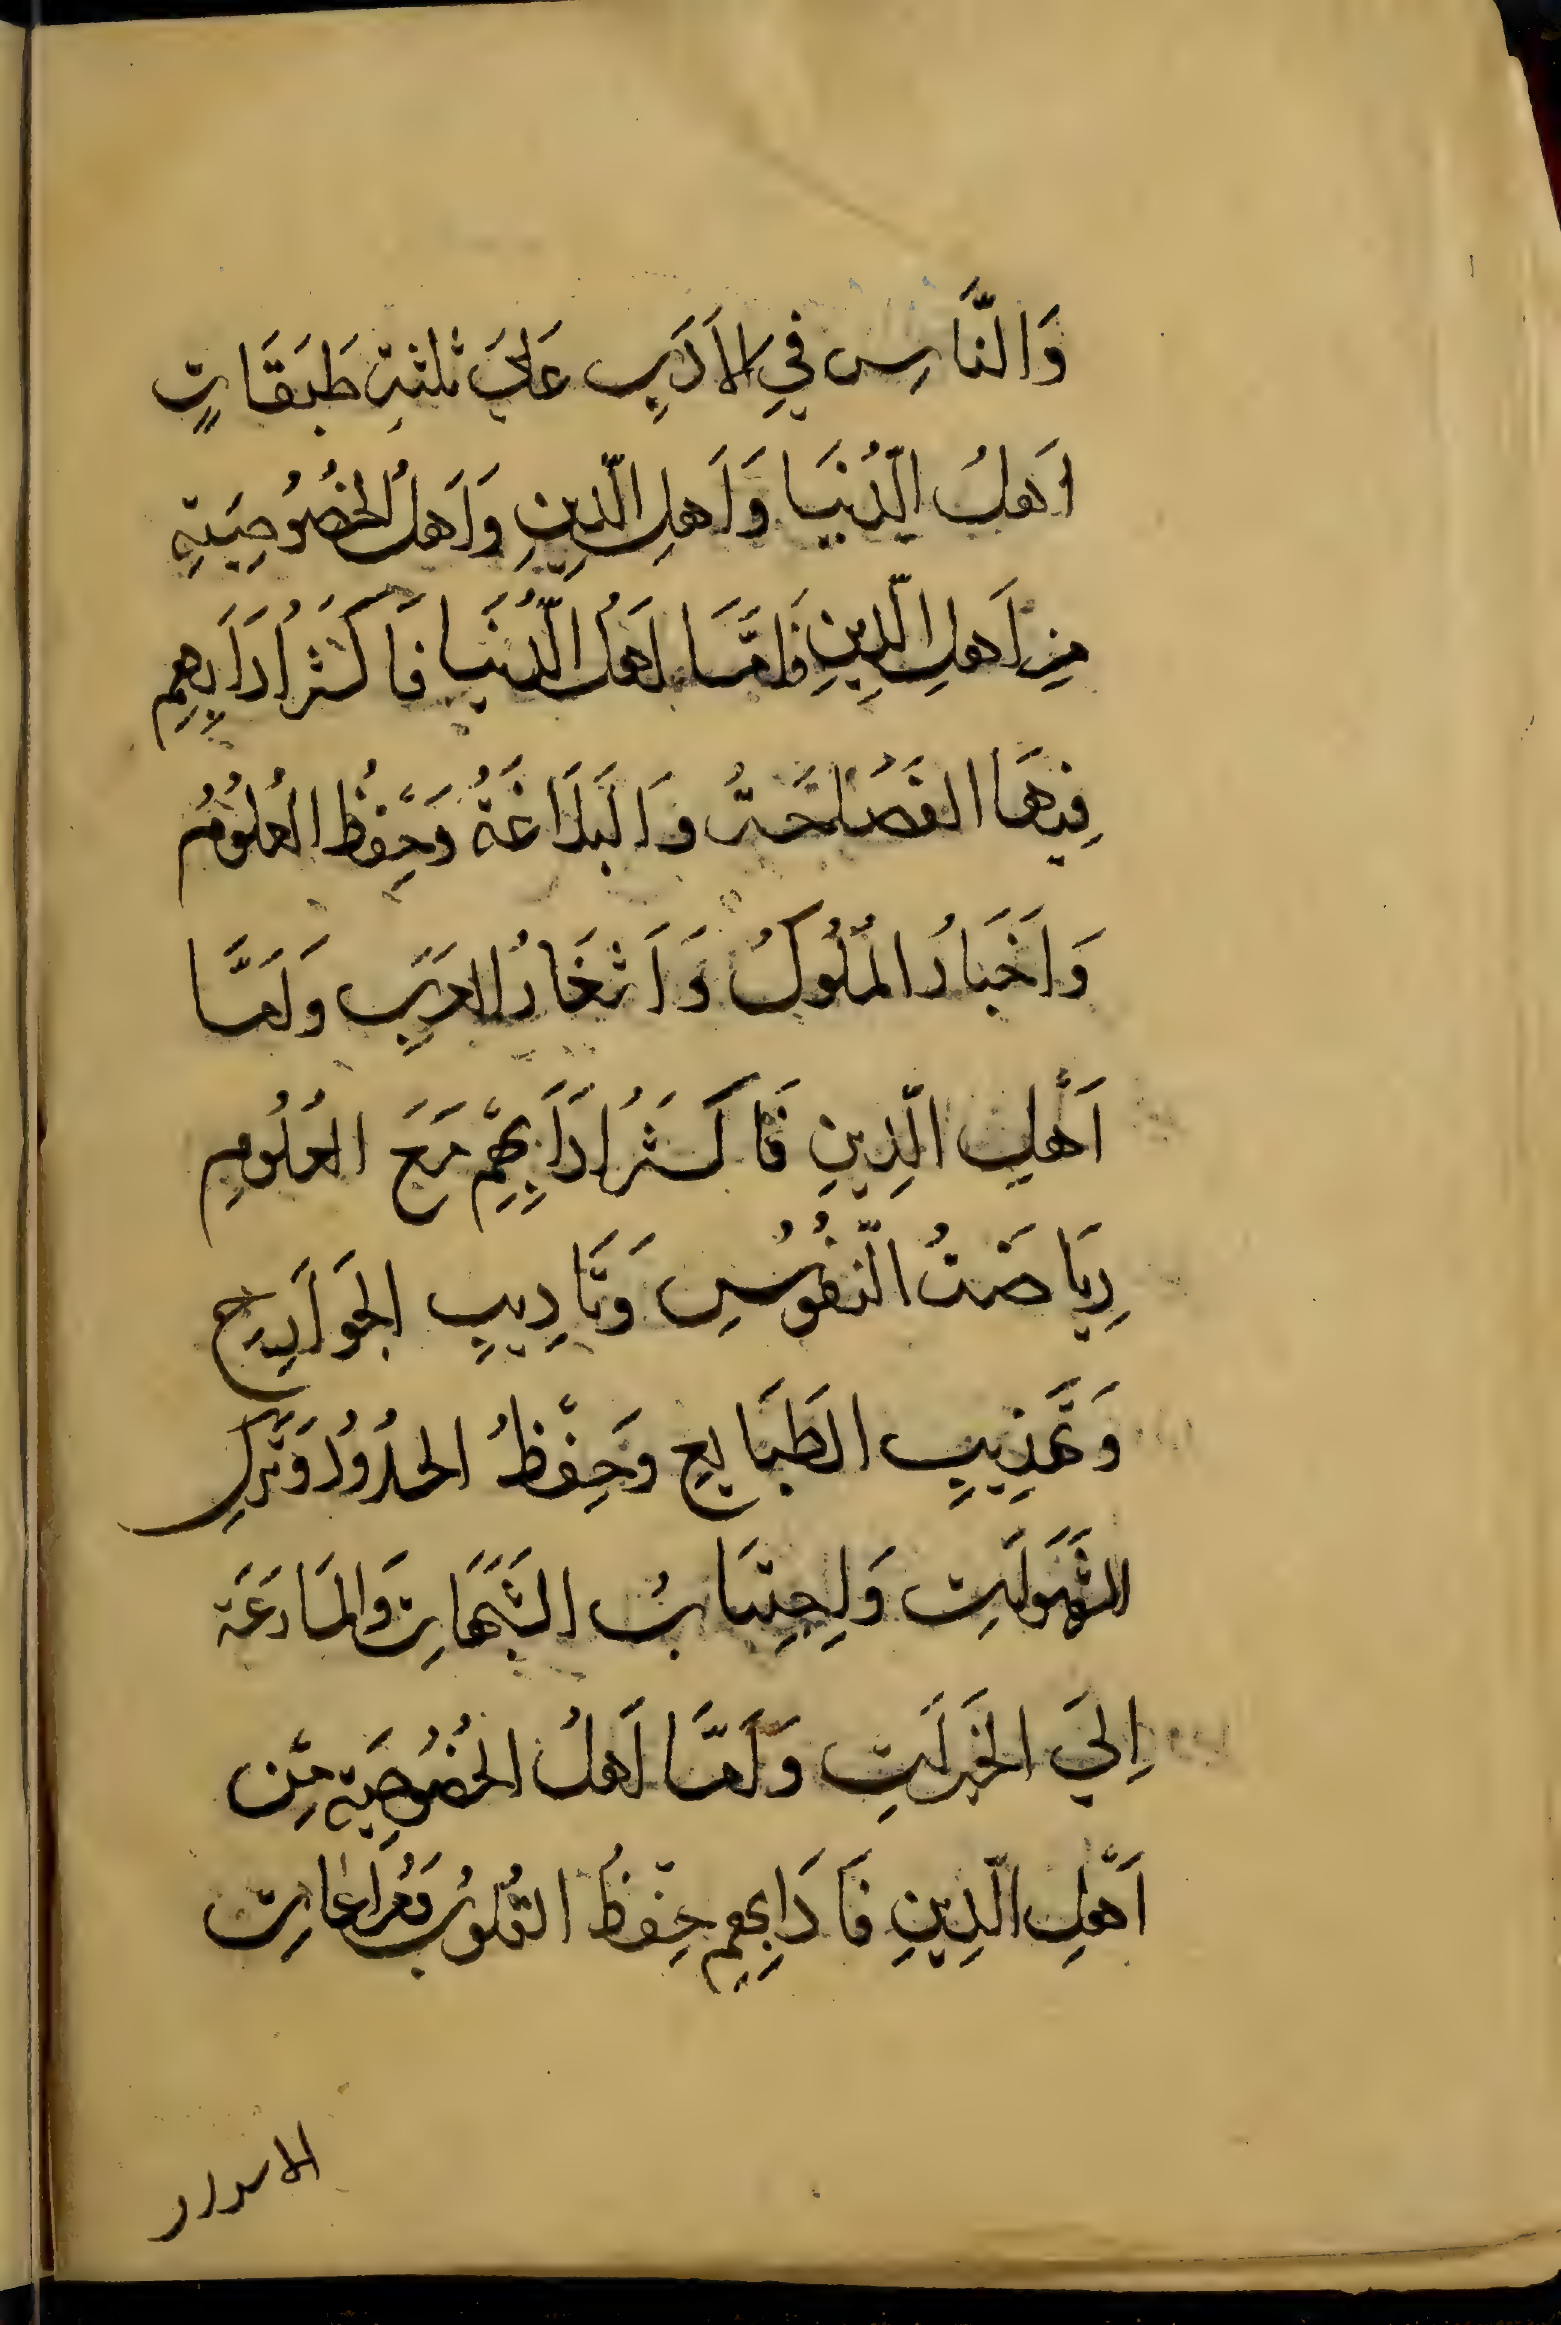 وَالنَّاسِ فِي الاَدَبِ عَلَيَ ثلثةِ طَبَقَاتٍ
اَهلُ الدُّنيَا وَاَهلِ الدِّينِ وَاَهلُ الخُصُوصِيَةِ
مِن اَهلِ الدِّينِ فَامَّا اَهلُ الدُّنيَا فَاكثَرُ ادَابِهِم
فِيهَا الفَصَاحَةُ وَالبَلَاغَةُ وَحِفظُ العُلُومُ
وَاَخبَارُ المُلُوكُ وَاَشعَارُ العَرَبِ وَاَمَّا
اَهلِ الدِّينِ فَاكثَرُ ادَابِهِم مَعَ العُلُومِ
رِيَاضَتُ النُّفُوُسِ وَتَادِيبِ الجَوَارِحِ
وَتَهذِيبِ الطَبَايِعِ وَحِفظُ الحُدُودُ وَتَركِ
الشَهَوَاتِ وَاِجتِنَابُ الشَبَهَاتِ وَالمَسَارَعَة
اِلىَ الخَيرَاتِ وَاَمَّا اَهلُ الخُصُوصِيَةِ مِّن
اَهلِ الدِّينِ فَادَابِهِم حِفظُ القُلُوبُ وَمُرَاعَاتِ
الاسرار